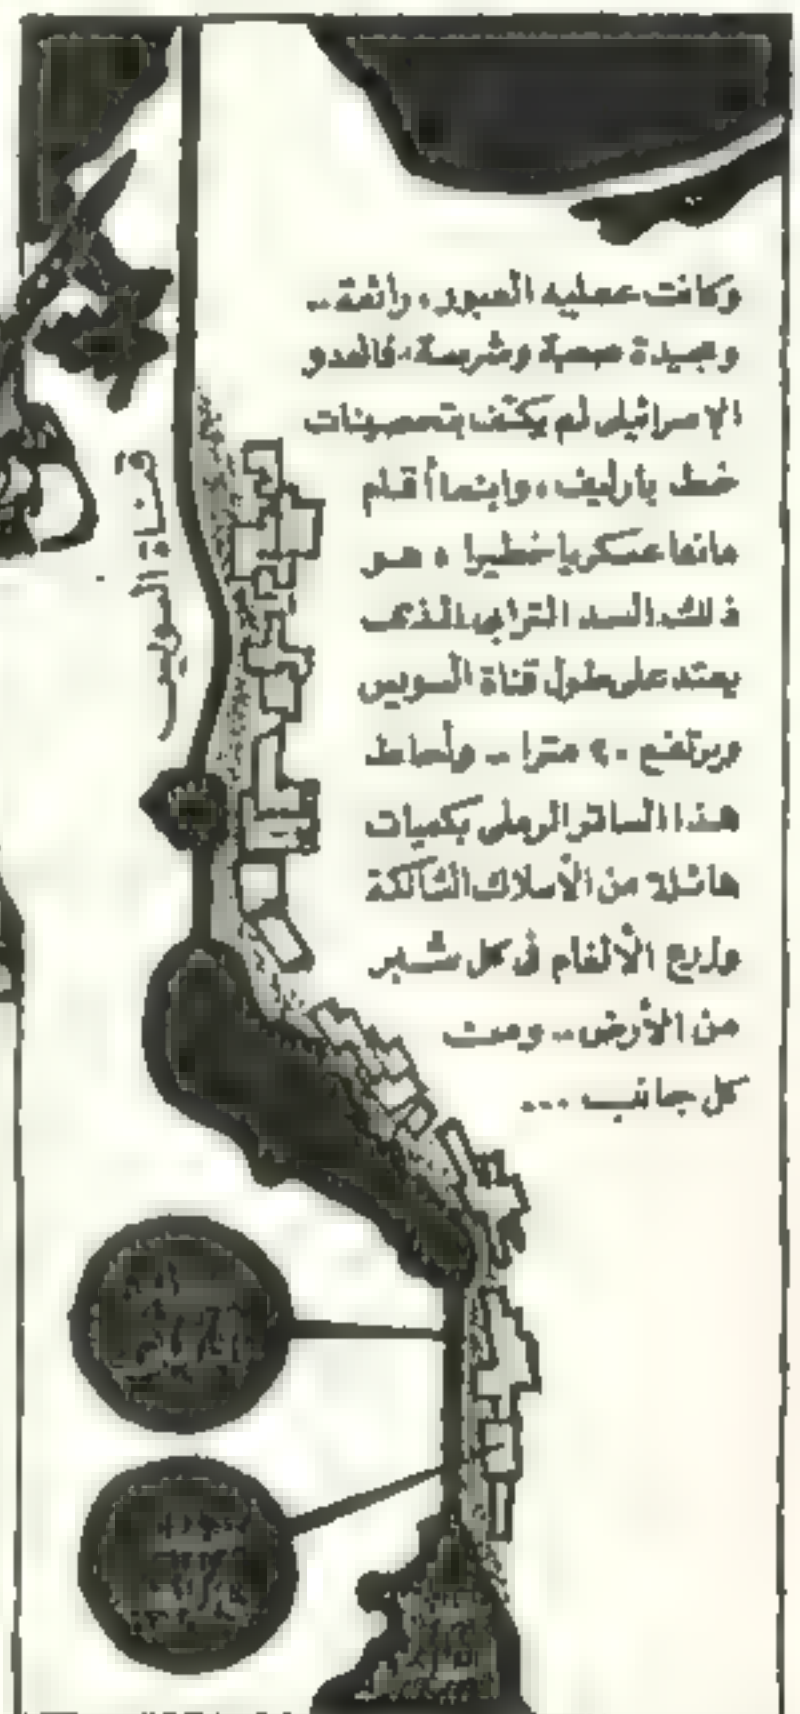 وكانت عملية العبور، رائعة..
ومجيدة صعبة وشرسة، فالعدو
الإسرائيلى لم يكتف بتحصينات
خط بارليف، وإنما أقام
مانعا عسكريا خطيرا، هو
ذلك السد الترابى الذى
يمتد على طول قناة السويس
ويرتفع ٢٠ مترا .. وأحاط
هذا الساتر الرملى بكميات
هائلة من الأسلاك الشائكة
وزرع الألغام فى كل شبر
من الأرض.. ومن
كل جانب ...
قناة السويس